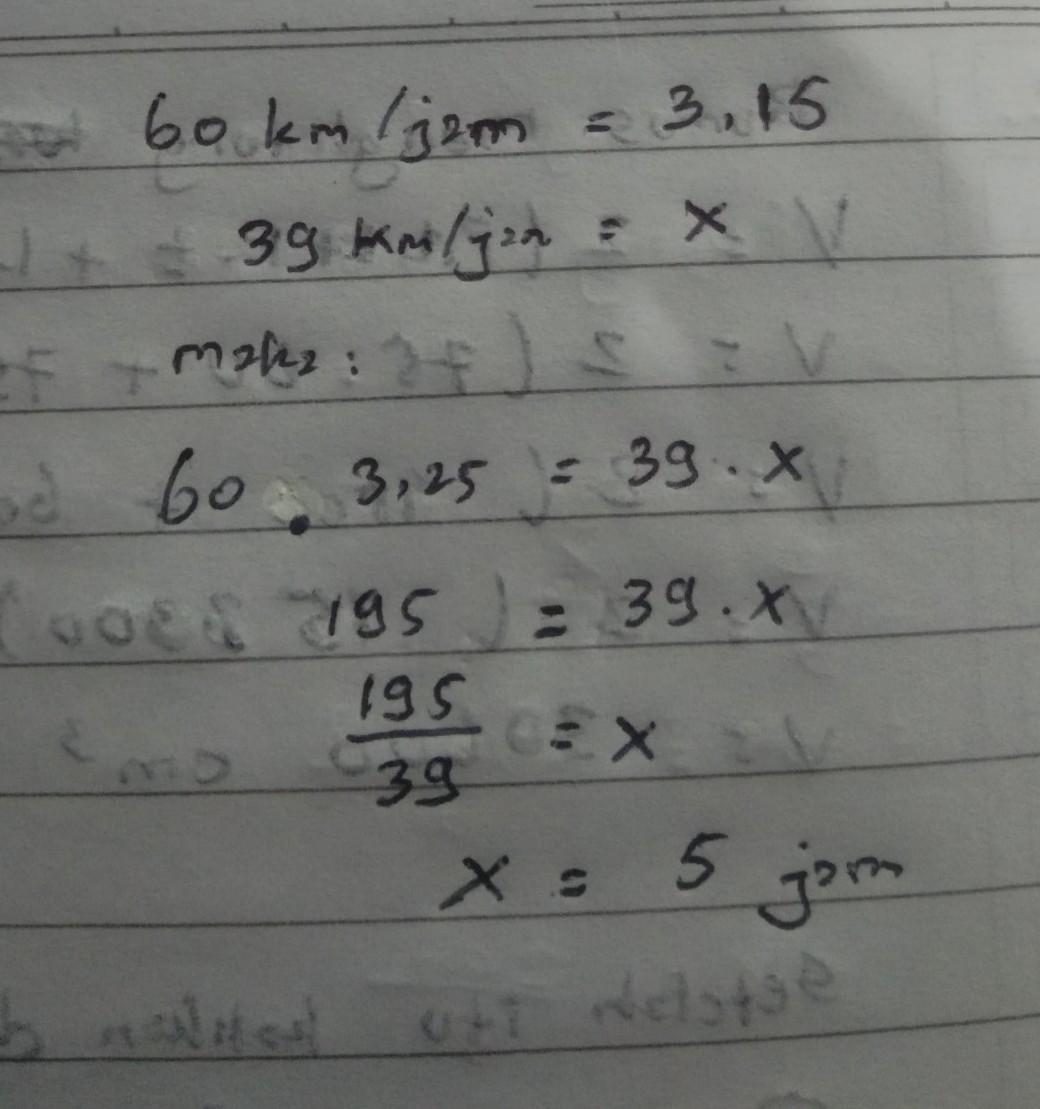 60 km/jam = 3,15
39 km/jam = x
maka:
60 . 3,25 = 39 . x
195 = 39 . x
195/39 = x
x = 5 jam